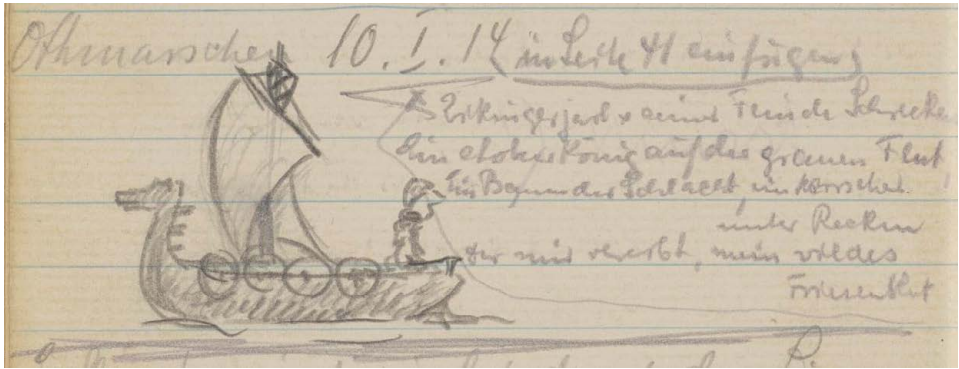 Othmarschen 10.I.14 (in Seite 41 einfügen)
Wikingerjarl, seiner Feinde Schrecken
Ein stolzer König auf der grauen Flut
Im Brausen der Schlacht, ein Herrscher
unter Recken
der mir vererbt, mein wildes
Friesenblut